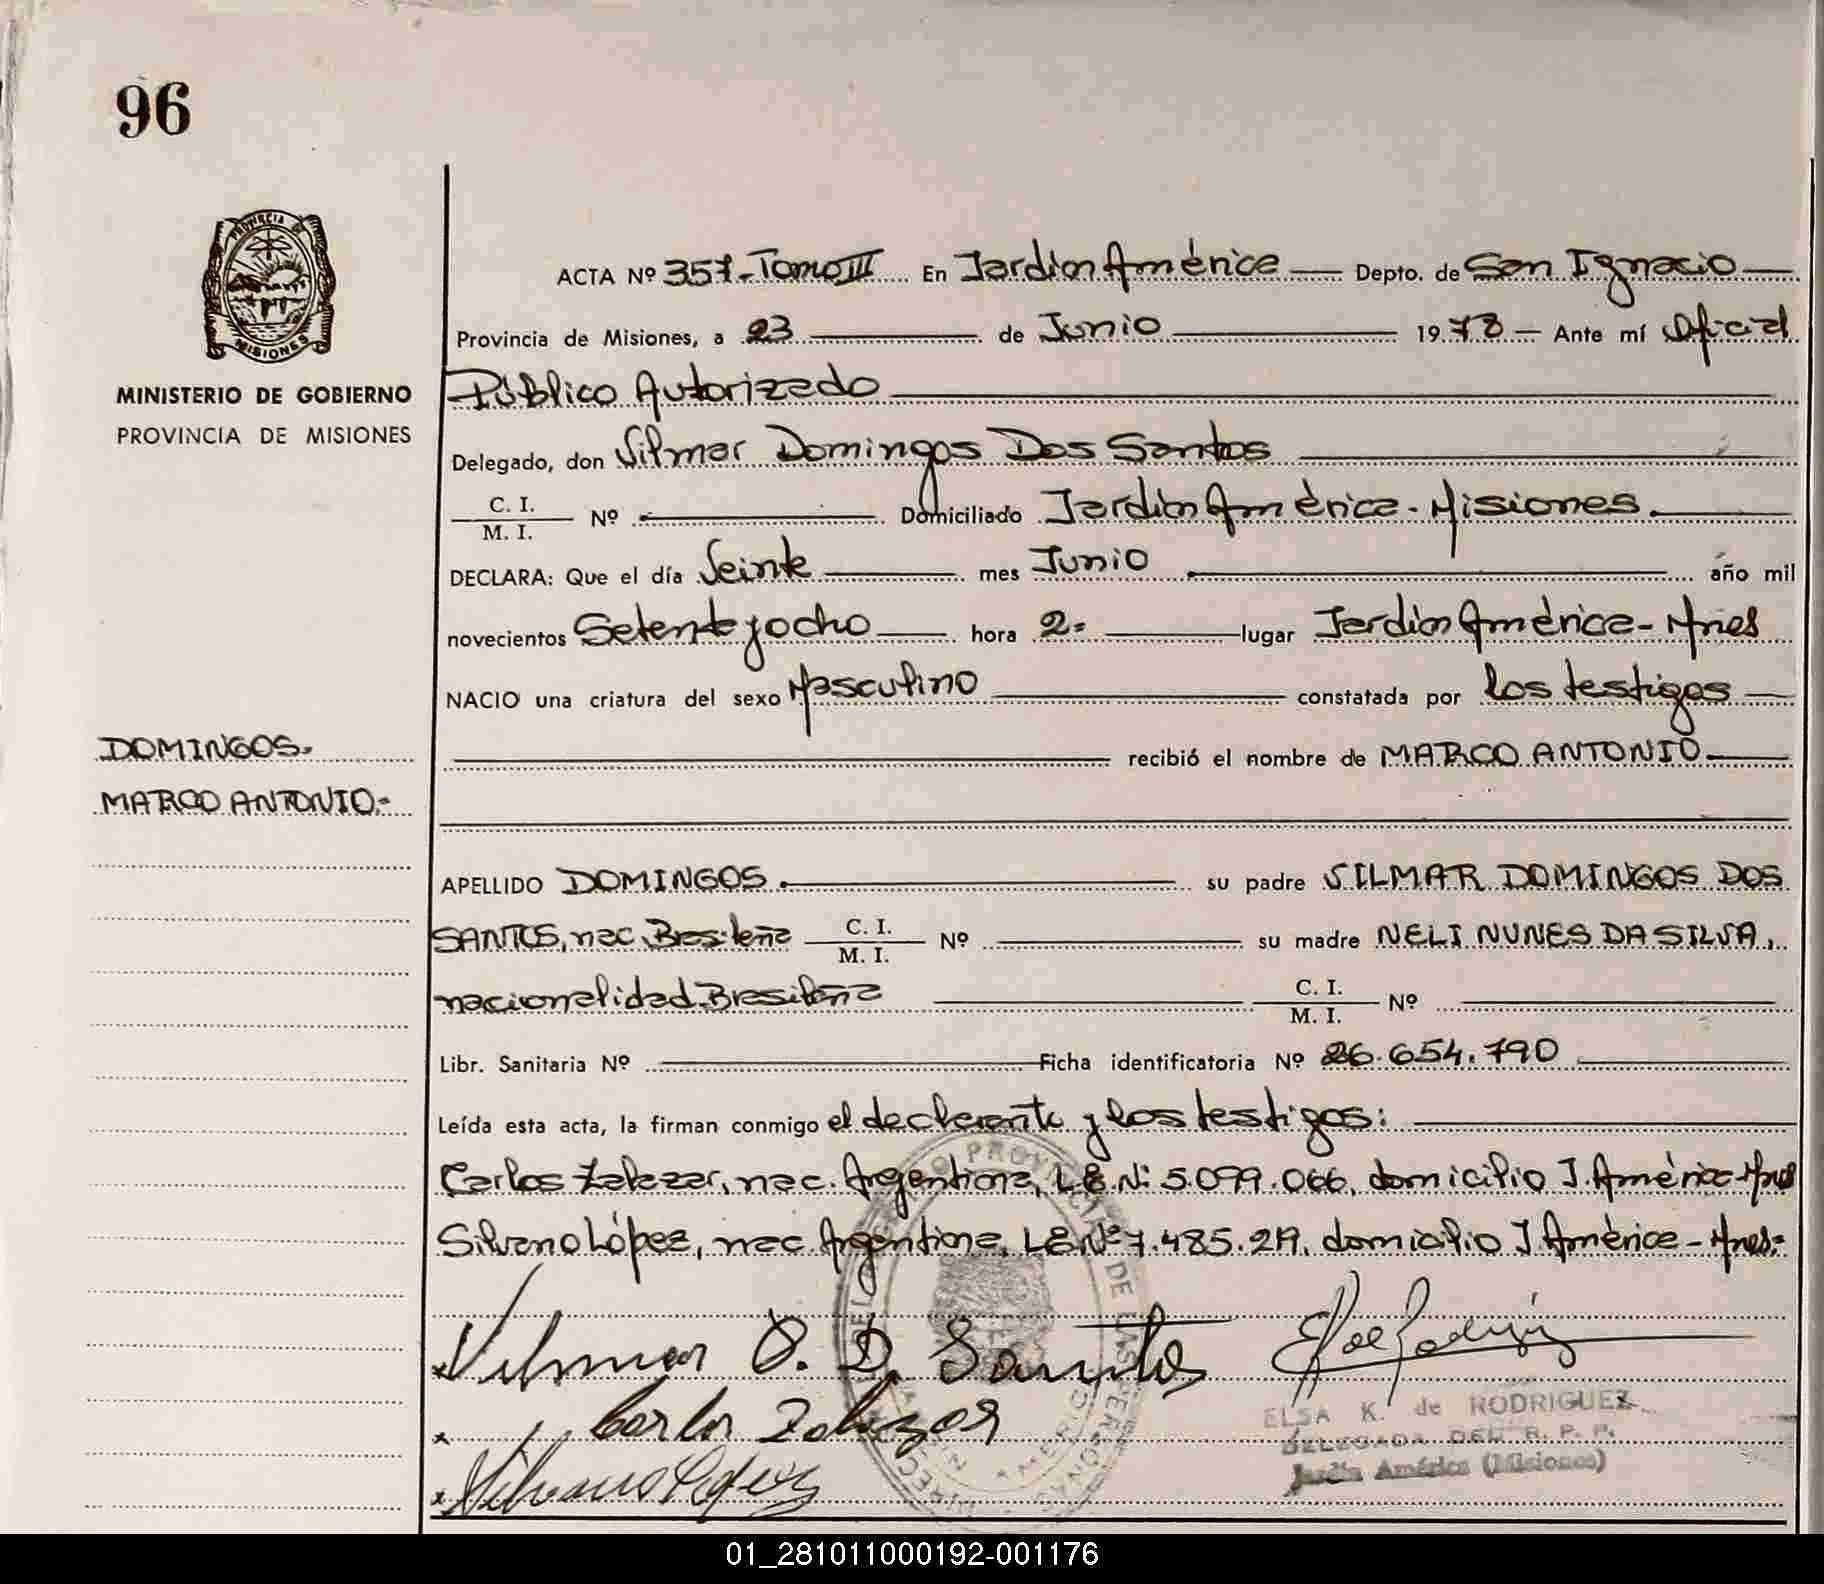 96
PROVINCIA DE
MISIONES
MINISTERIO DE GOBIERNO
PROVINCIA DE MISIONES
ACTA Nº 357-Tomo III En Jardin América Depto. de San Ignacio
Provincia de Misiones, a 23 de Junio 1978 Ante mí Oficial
Público Autorizado
Delegado, don Silmar Domingos Dos Santos
C. I.
M. I. Nº Domiciliado Jardin América - Misiones.
DECLARA: Que el día Veinte mes Junio año mil
novecientos Setenta y ocho hora 2= lugar Jardin América - Mnes
NACIO una criatura del sexo Masculino constatada por los testigos
DOMINGOS.
recibió el nombre de MARCO ANTONIO
MARCO ANTONIO.-
APELLIDO DOMINGOS su padre SILMAR DOMINGOS DOS
SANTOS, nac. Brasileña C. I. M. I. Nº su madre NELI NUNES DA SILVA,
nacionalidad Brasileña C. I. M. I. Nº
Libr. Sanitaria Nº Ficha identificatoria Nº 26.654.790
Leída esta acta, la firman conmigo el declarante y los testigos:
Carlos Zalazar, nac. Argentina, L.E.N: 5.099.066, domicilio J. América - Mnes
Silvano López, nac. Argentina, L.E.Nº 7.485.219, domicilio J. América - Mnes.=
Vilmar D. D. Santos
Carlos Zalazar
Silvano López
ELSA K. de RODRIGUEZ
DELEGADA DEL R. P. P.
Jardín América (Misiones)
01_281011000192-001176